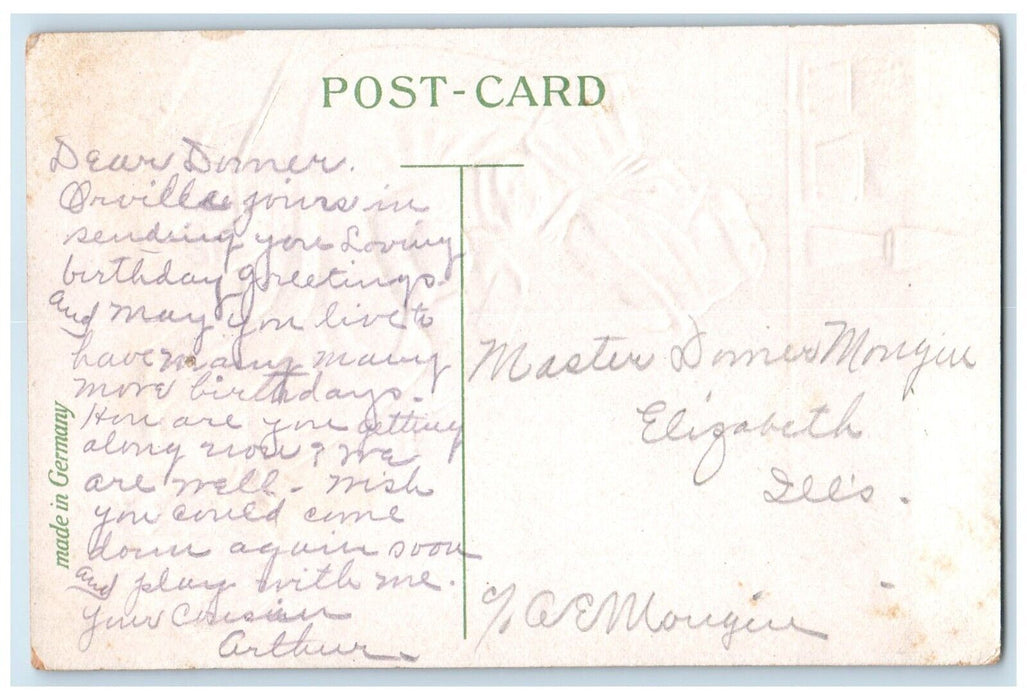 POST-CARD
Dear Dorner.
Orville joins in
sending you Loving
birthday greetings.
and may you live to
have many many
more birthdays.
How are you getting
along now? We
are well. Wish
you could come
down again soon
and play with me.
Your Cousin
Arthur.
made in Germany
Master Dorner Mongin
Elizabeth
Ill's.
c/o A E Mongin